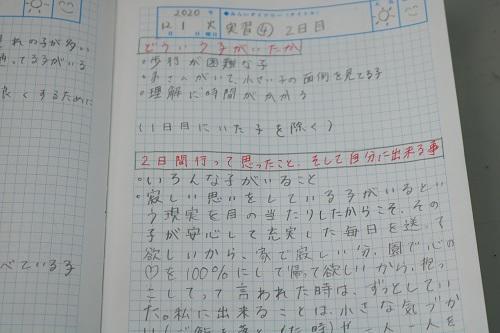 れの子が多い
良くするために
べている子
2020年
みらいダイアリー〈タイトル〉
12月1日 火曜日 実習④ 2日目
どういう子がいたか
・歩行が困難な子
・弟さんがいて、小さい子の面倒を見てる子
・理解に時間がかかる
(1日目にいた子を除く)
2日間行って思ったこと、そして自分に出来る事
・いろんな子がいること
・寂しい思いをしている子がいるとい
う現実を目の当たりしたからこそ、その
子が安心して充実した毎日を送って
欲しいから、家で寂しい分、園で心の
♡を100%にして帰って欲しいから、抱っ
こしてって言われた時は、ずっとしてい
た。私に出来ることは、小さな気づか